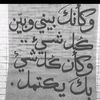 وكأنك بيني وبين
كل شيء..
وكأن كل شيء
بك يكتمل.